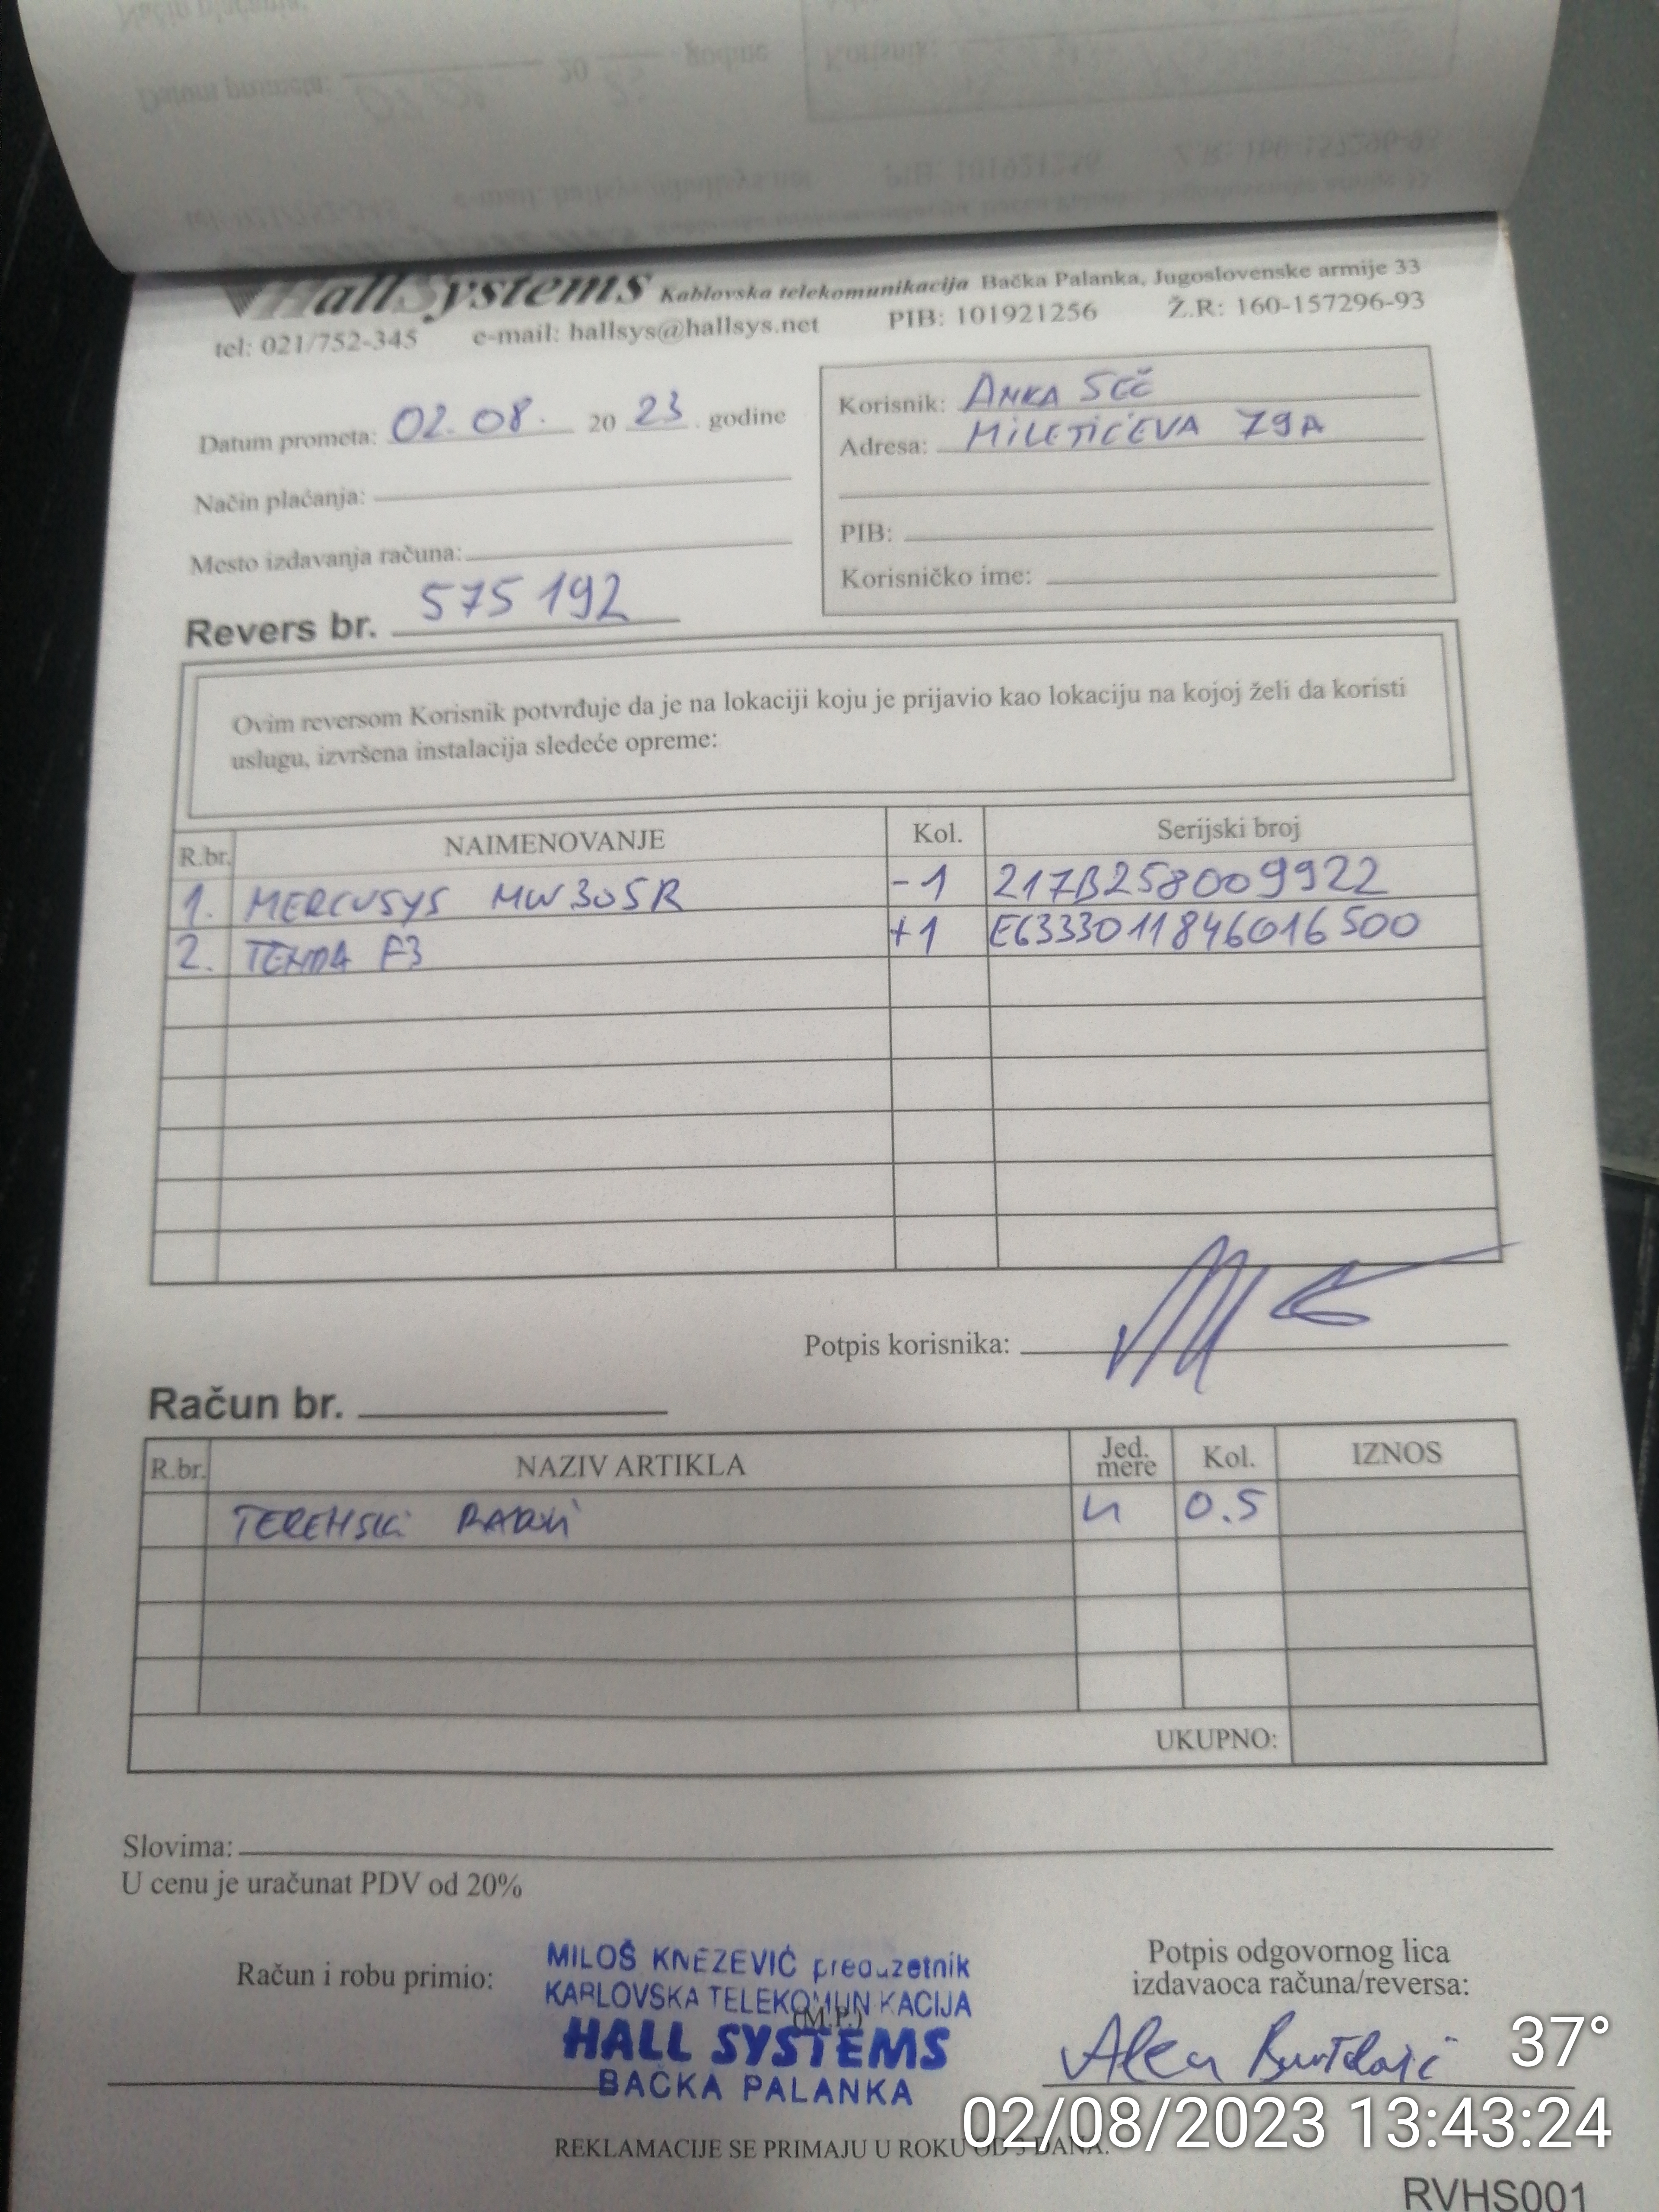 HallSystems Kablovska telekomunikacija Bačka Palanka, Jugoslovenske armije 33
tel: 021/752-345 e-mail: hallsys@hallsys.net PIB: 101921256 Ž.R: 160-157296-93
Datum prometa: 02.08. 20 23. godine
Način plaćanja:
Mesto izdavanja računa:
Korisnik: ANKA SEČ
Adresa: MILETIĆEVA 79A
PIB:
Korisničko ime:
Revers br. 575192
Ovim reversom Korisnik potvrđuje da je na lokaciji koju je prijavio kao lokaciju na kojoj želi da koristi
uslugu, izvršena instalacija sledeće opreme:
R.br. NAIMENOVANJE Kol. Serijski broj
1. MERCUSYS MW305R -1 217B258009922
2. TENDA F3 +1 E6333011846016500
Potpis korisnika:
Račun br.
R.br. NAZIV ARTIKLA Jed. mere Kol. IZNOS
TERENSKI RADNI 0.5
UKUPNO:
Slovima:
U cenu je uračunat PDV od 20%
Račun i robu primio:
MILOŠ KNEZEVIĆ preduzetnik
KABLOVSKA TELEKOMUNIKACIJA
(M.P.)
HALL SYSTEMS
BAČKA PALANKA
Potpis odgovornog lica
izdavaoca računa/reversa:
37°
02/08/2023 13:43:24
REKLAMACIJE SE PRIMAJU U ROKU OD 3 DANA.
RVHS001